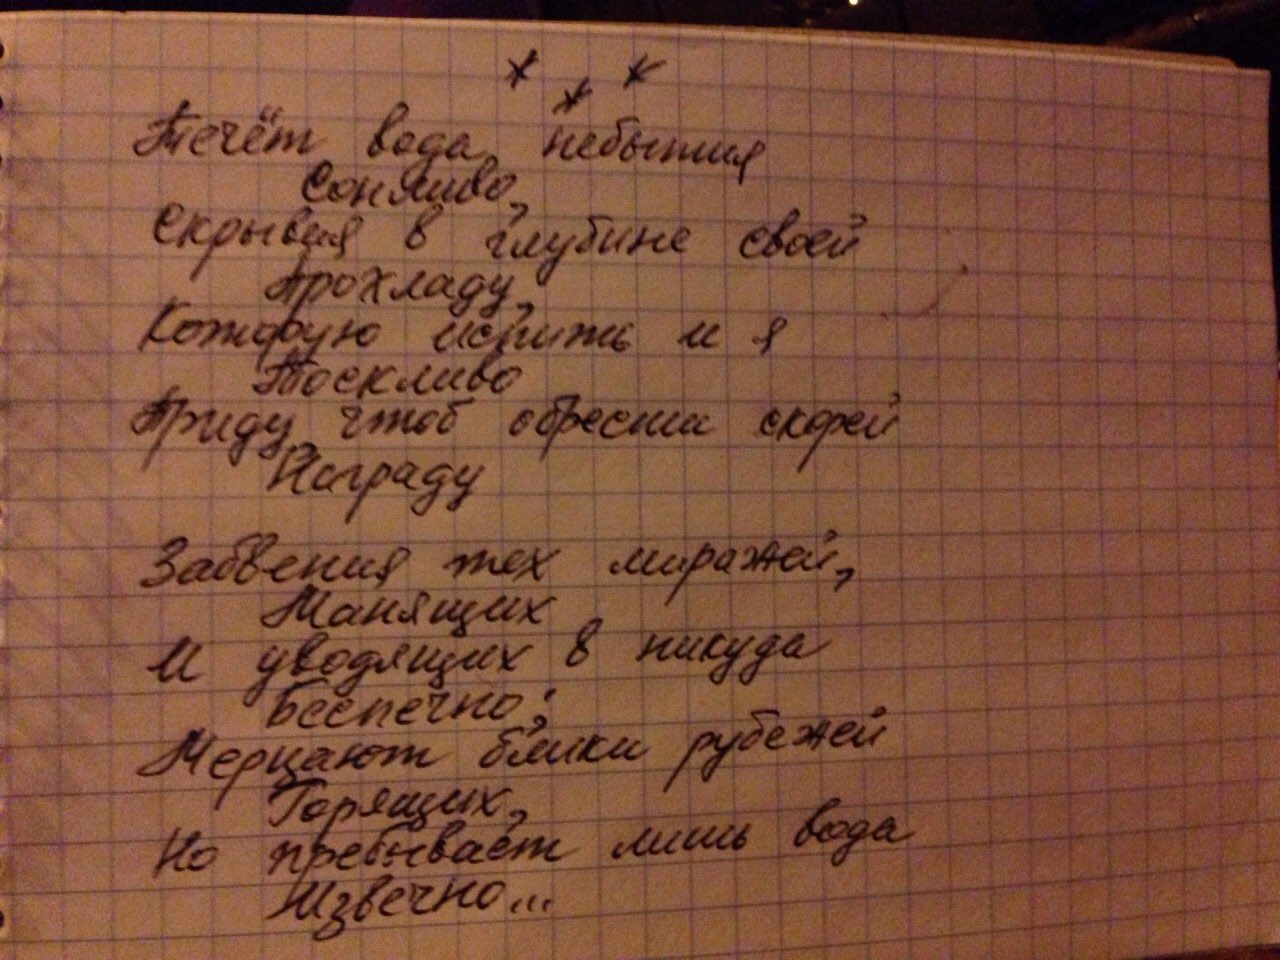 * * *
Течёт вода небытия
Сонливо,
Скрывая в глубине своей
Прохладу,
Которую испить и я
Тоскливо
Приду, чтоб обрести скорей
Награду
Забвения тех миражей,
Манящих
И уводящих в никуда
Беспечно;
Мерцают блики рубежей
Горящих,
Но пребывает лишь вода
Извечно...